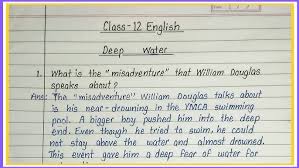 Class-12 English
Deep Water
1. What is the "misadventure" that William Douglas
speaks about?
Ans: The "misadventure" William Douglas talks about
is his near-drowning in the YMCA swimming
pool. A bigger boy pushed him into the deep
end. Even though he tried to swim, he could
not stay above the water and almost drowned.
This event gave him a deep fear of water for